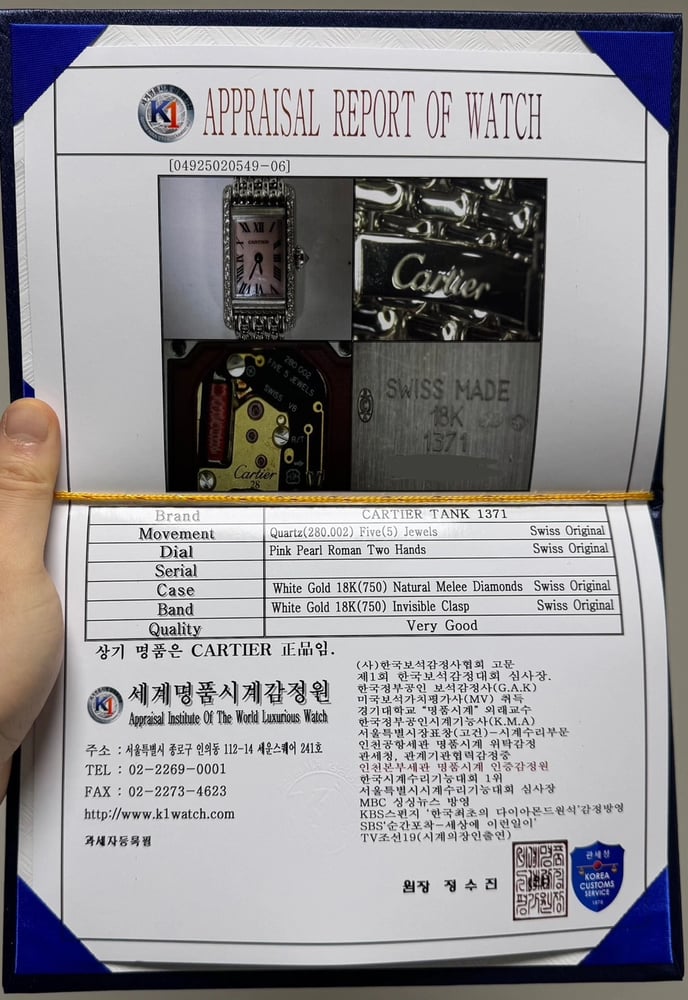 K1 APPRAISAL REPORT OF WATCH
[04925020549-06]
CARTIER
Cartier
280.002
FIVE 5 JEWELS
SWISS V8
R/T
Cartier
28
SWISS MADE
18K
1371
Brand CARTIER TANK 1371
Movement Quartz(280.002) Five(5) Jewels Swiss Original
Dial Pink Pearl Roman Two Hands Swiss Original
Serial
Case White Gold 18K(750) Natural Melee Diamonds Swiss Original
Band White Gold 18K(750) Invisible Clasp Swiss Original
Quality Very Good
상기 명품은 CARTIER 正品임.
K1 세계명품시계감정원
Appraisal Institute Of The World Luxurious Watch
주소 : 서울특별시 종로구 인의동 112-14 세운스퀘어 241호
TEL : 02-2269-0001
FAX : 02-2273-4623
http://www.k1watch.com
과세자등록필
(사)한국보석감정사협회 고문
제1회 한국보석감정대회 심사장.
한국정부공인 보석감정사(G.A.K)
미국보석가치평가사(MV) 취득
경기대학교 "명품시계" 외래교수
한국정부공인시계기능사(K.M.A)
서울특별시장표창(고건)-시계수리부문
인천공항세관 명품시계 위탁감정
관세청, 관계기관협력감정중
인천본부세관 명품시계 인증감정원
한국시계수리기능대회 1위
서울특별시시계수리기능대회 심사장
MBC 싱싱뉴스 방영
KBS스펀지 '한국최초의 다이아몬드원석'감정방영
SBS'순간포착-세상에 이런일이'
TV조선19(시계의장인출연)
원장 정수진
관세청
KOREA
CUSTOMS
SERVICE
1878